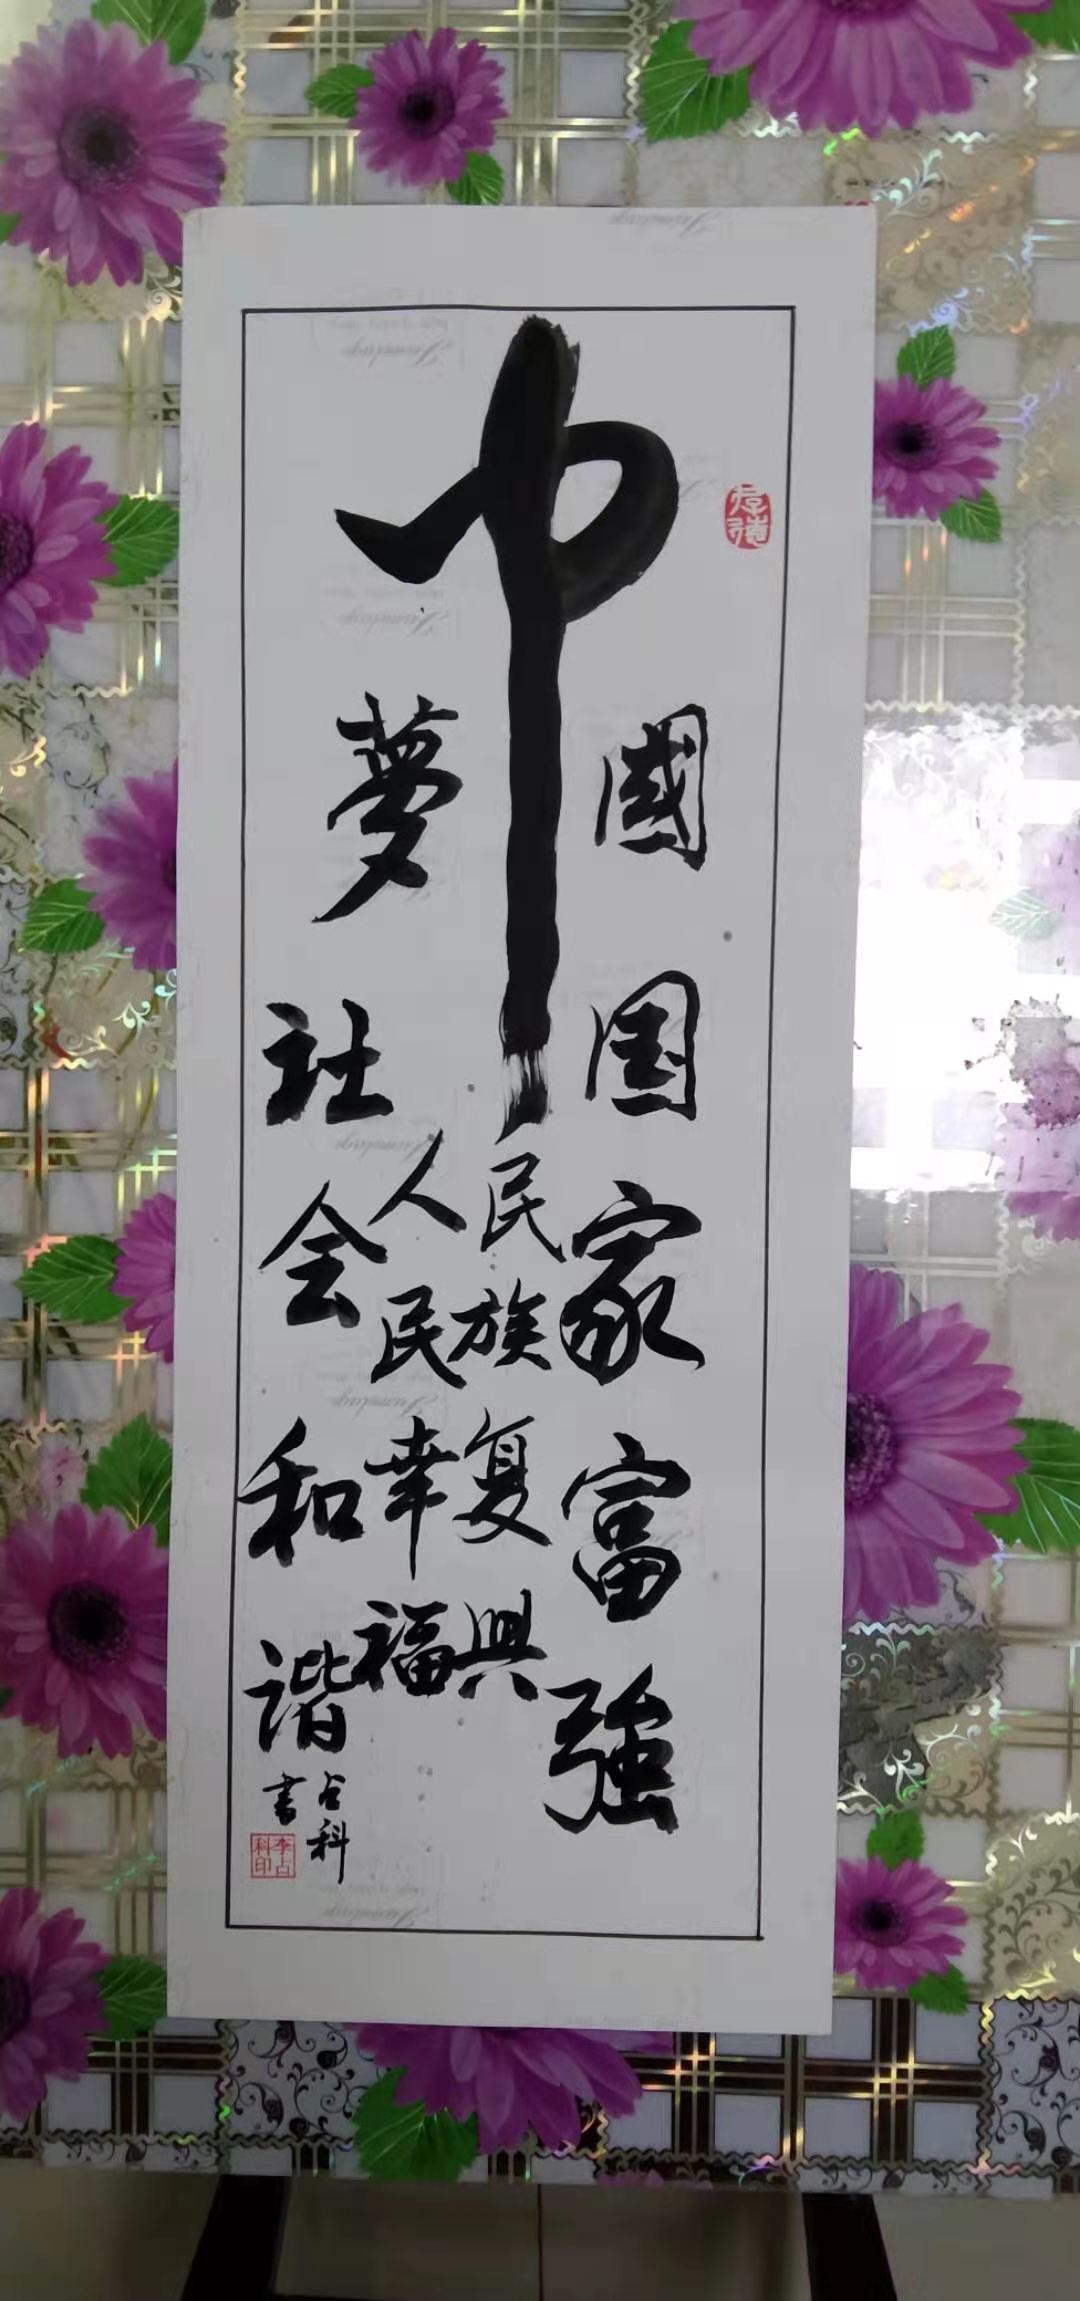 中
國
夢
国家富強
民族复興
人民幸福
社会和谐
占科
書
李占
科印